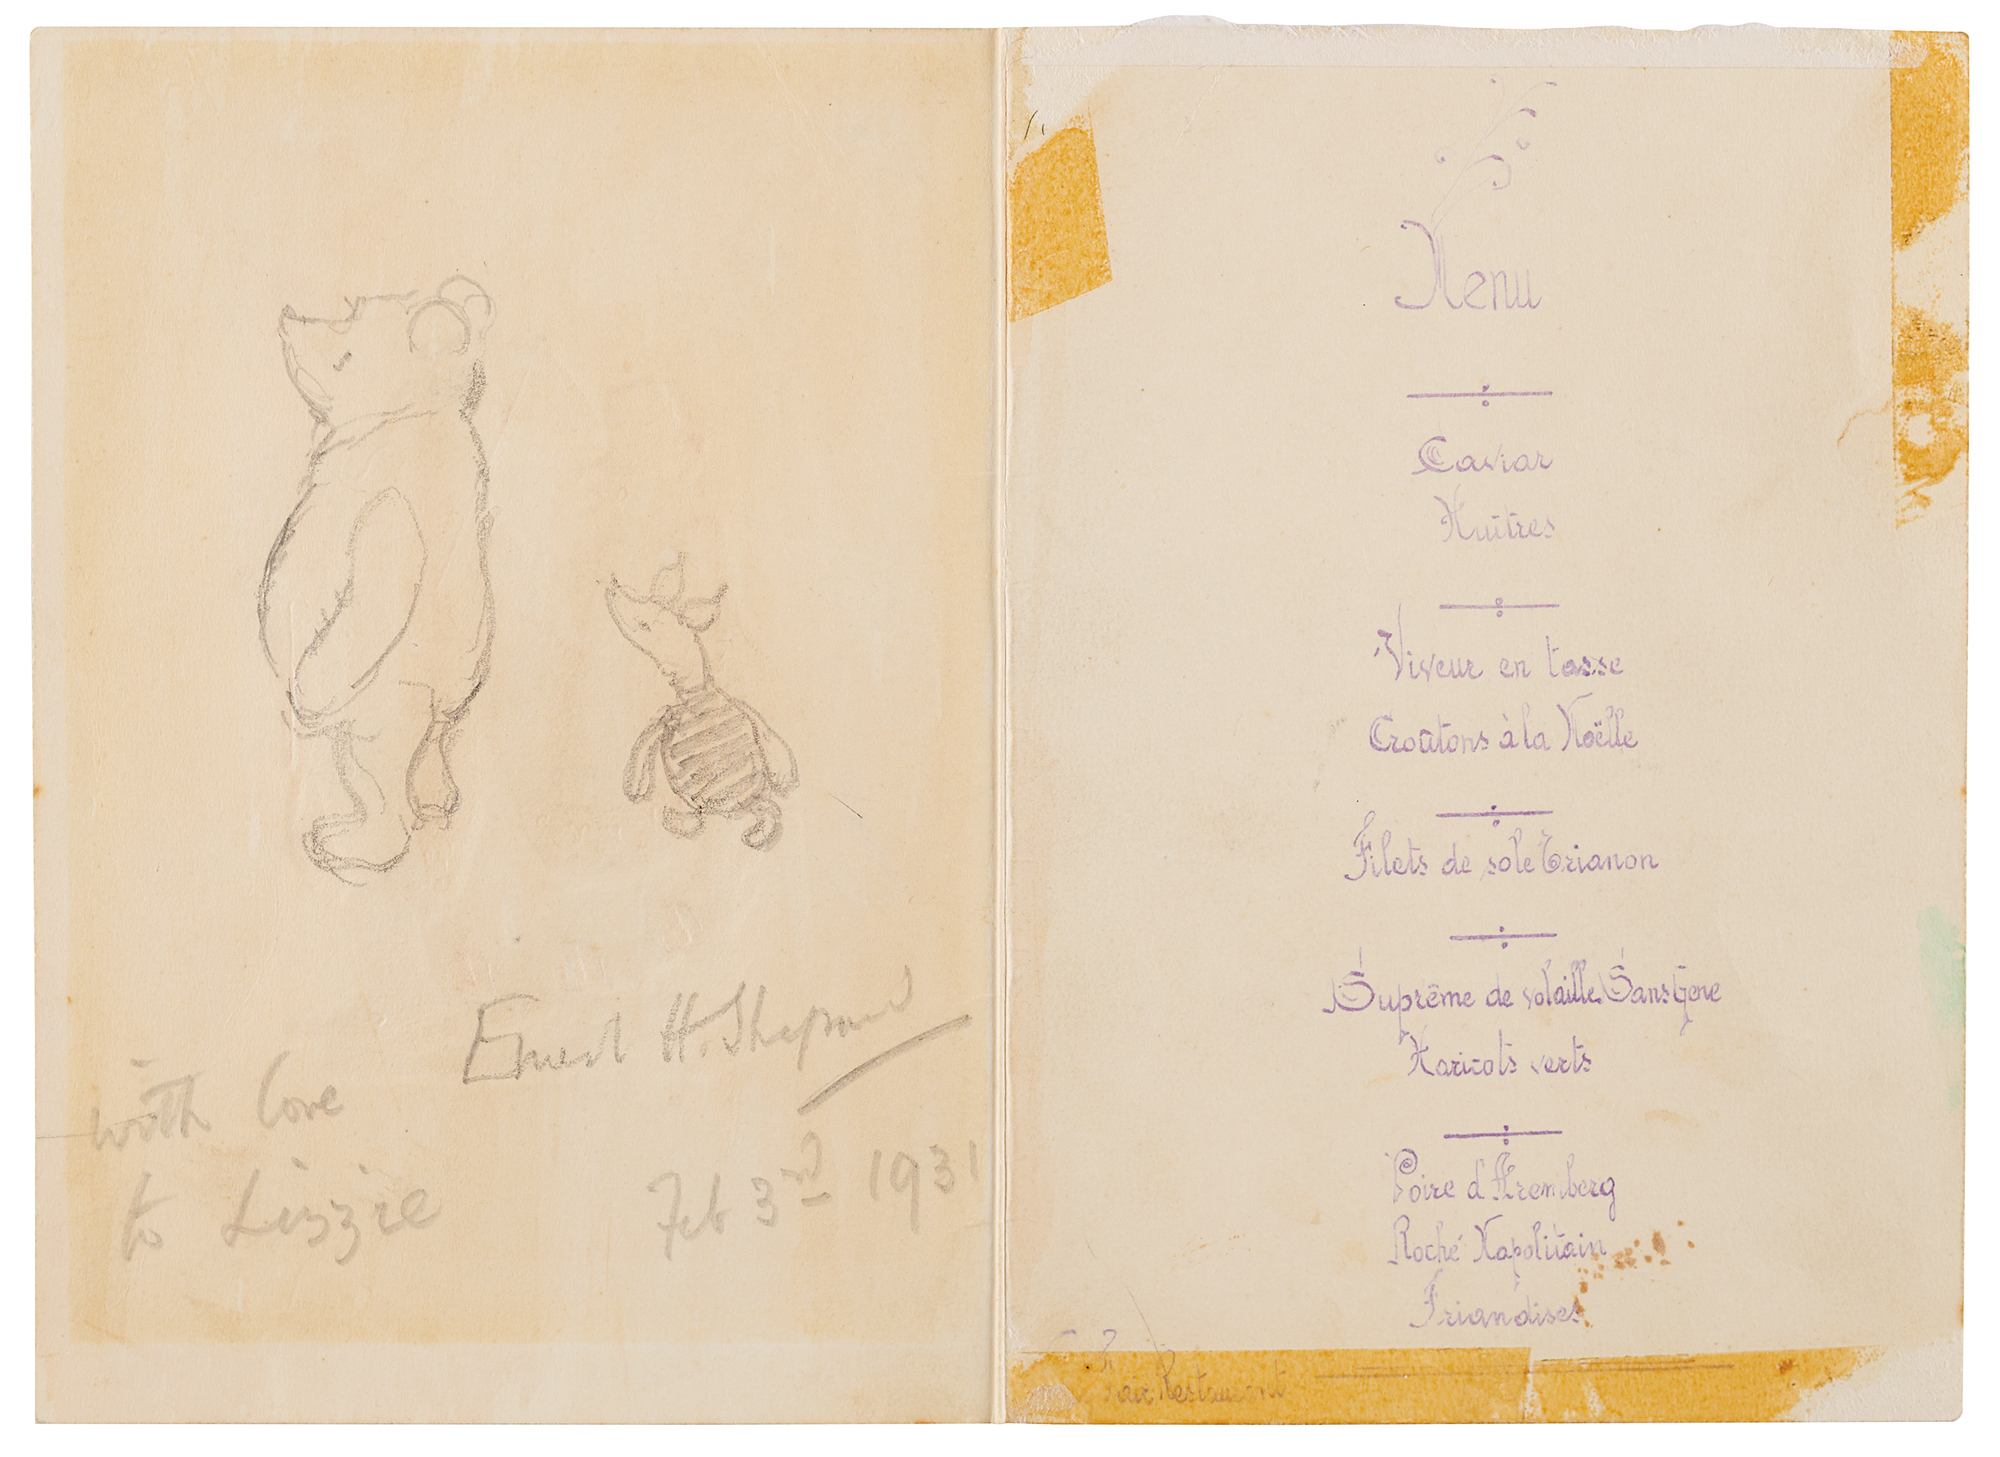 Ernest H. Shepard
with love
to Lizzie
Feb 3rd 1931
Menu
Caviar
Huîtres
Viveur en tasse
Croûtons à la Noëlle
Filets de sole Trianon
Suprême de volaille Sans Gêne
Haricots verts
Poire d'Aremberg
Roché Napolitain
Friandises
Restaurant